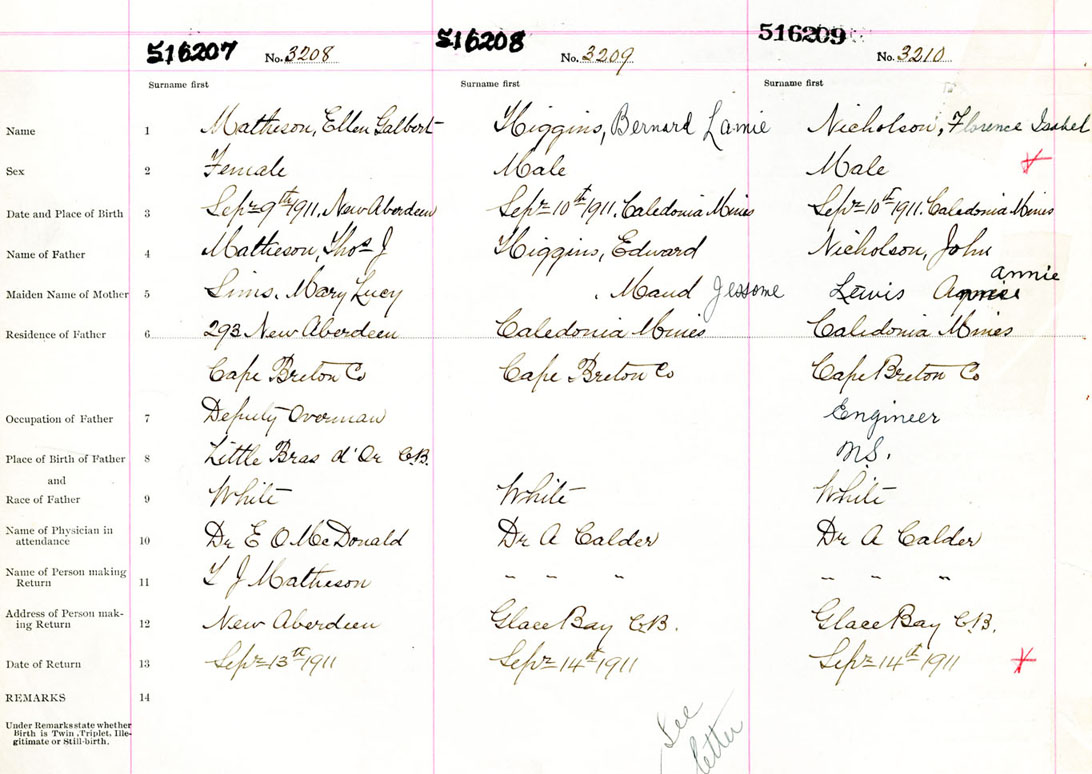 516207 516208 516209
No. 3208 No. 3209 No. 3210
Surname first Surname first Surname first
Name 1 Matheson, Ellen Galbert Higgins, Bernard Lamie Nicholson, Florence Isabel
Sex 2 Female Male Male
Date and Place of Birth 3 Sepr 9th 1911. New Aberdeen Sepr 10th 1911. Caledonia Mines Sepr 10th 1911. Caledonia Mines
Name of Father 4 Matheson, Thos J Higgins, Edward Nicholson, John
annie
Maiden Name of Mother 5 Sims, Mary Lucy . Maud Jessome Lewis
Residence of Father 6 293 New Aberdeen Caledonia Mines Caledonia Mines
Cape Breton Co Cape Breton Co Cape Breton Co
Occupation of Father 7 Deputy Overman Engineer
Place of Birth of Father 8 Little Bras d'Or C.B. N.S.
and
Race of Father 9 White White White
Name of Physician in
attendance 10 Dr E O McDonald Dr A Calder Dr A Calder
Name of Person making
Return 11 T J Matheson " " " " " "
Address of Person mak-
ing Return 12 New Aberdeen Glace Bay C.B. Glace Bay C.B.
Date of Return 13 Sepr 13th 1911 Sepr 14th 1911 Sepr 14th 1911
REMARKS 14
Under Remarks state whether
Birth is Twin, Triplet, Ille-
gitimate or Still-birth.
See
letter